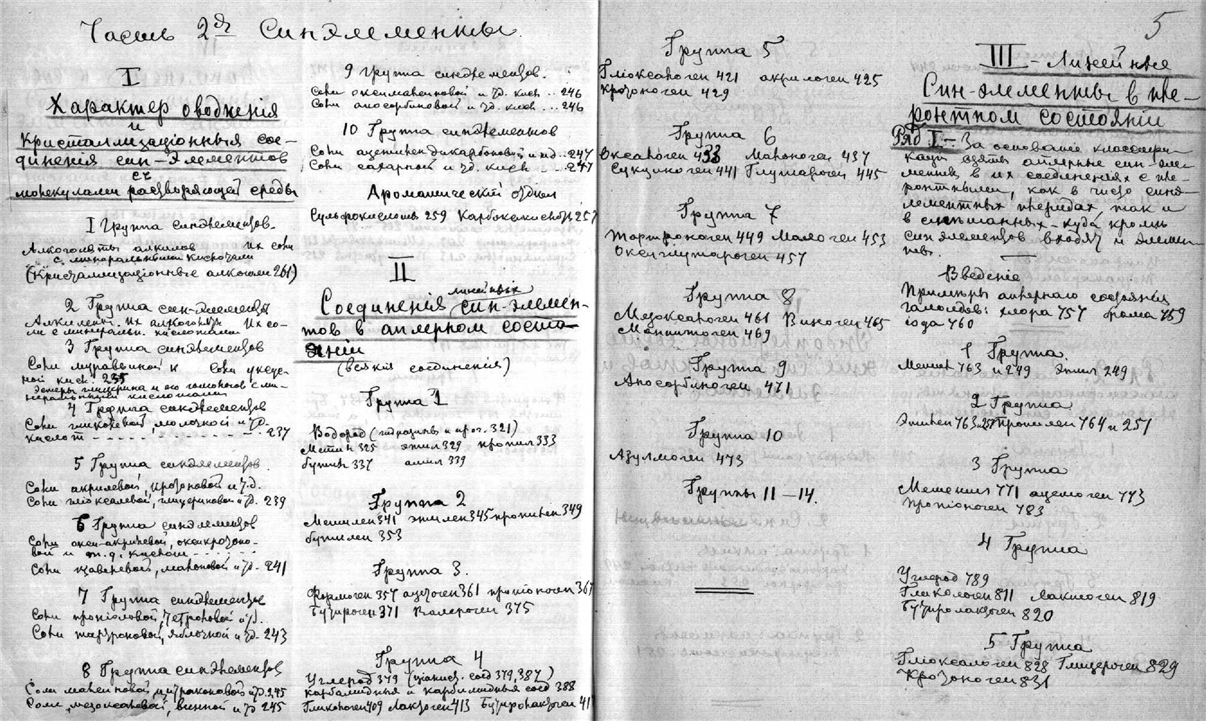 Часть 2ая Синэлементы.
I
Характер оводненія
и
кристаллизаціонныя сое-
диненія син-элементов
съ
молекулами растворяющей среды
I Группа синэлементов.
Алкоголяты алкилов Их соли
с минеральными кислотами
(Кристаллизаціонные алкоголи 261)
2 Группа син-элементов
Их со-
ли с минерал. кислотами
3 Группа синэлементов
Соли муравьиной и Соли уксус-
ной кисл. 235
Эфиры глицерина и его гомологов с ми-
неральными кислотами
4 Группа синэлементов
Соли гликолевой, молочной и т.д.
кислот - - - - - - - - - - 237
5 Группа синэлементов.
Соли акриловой, кротоновой и т.д.
Соли глиоксалевой, глицериновой и т.д. 239
6 Группа синэлементов
Соли окси-акриловой, оксикротоно-
вой и т.д. кислот - - - - - -
Соли щавелевой, малоновой и т.д. 241
7 Группа синэлементов
Соли пропіоловой, тетроловой и т.д.
Соли тартроновой, яблочной и т.д. 243
8 Группа синэлементов
Соли малеиновой, цитраконовой и т.д. 245
Соли мезоксалевой, винной и т.д. 245
9 Группа синэлементов.
Соли оксималеиновой и т.д. кисл .. 246
Соли апосорбиновой и т.д. кисл ... 246
10 Группа синэлементов
Соли ацетилендикарбоновой и т.д.. 247
Соли сахарной и т.д. кисл - .. 247
Ароматическій отдел
Сульфокислоты 259 Карбоксикислоты 257
II
Соединенія линейных син-элемен-
тов в амерном состо-
яніи
(всякія соединенія)
Группа 1
Водород (гидраты и проч. 321)
Метил 325 этил 329 пропил 333
бутил 337 амил 339
Группа 2
Метилен 341 этилен 345 пропилен 349
бутилен 353
Группа 3.
Формоген 357 ацетоген 361 пропіоноген 367
Бутироген 371 Валероген 375
Группа 4
Углерод 379 (ціанист. соед 379, 387)
Карбамидныя и карбимидныя соед 388
Гликологен 409 Лактоген 413 Бутиролактоген 417
Группа 5
Гліоксалоген 421 акрилоген 425
Кротоноген 429
Группа 6
Оксалоген 433 Малоноген 437
Сукциноген 441 Глутароген 445
Группа 7
Тартроноген 449 Малоген 453
Оксиглутароген 457
Группа 8
Мезоксалоген 461 Виноген 465
Маннитоген 469
Группа 9
Апосорбиноген 471
Группа 10
Азулмоген 473
Группы 11 – 14.
5
III - Линейные
Син-элементы в ме-
ронтном состояніи
Ряд I. - За основаніе классифи-
каціи взяты амерные син-эле-
менты в их соединеніях с ме-
ронтными, как в число синэ-
лементных меридах так и
в смешанных - куда кроме
син элементов входят и элемен-
ты.
Введеніе
Примеры амерного состоянія
галоидов: хлора 757 брома 759
іода 760
1 Группа.
Метил 763 и 249 этил 249
2 Группа
Этилен 763,251 Пропилен 764 и 251
3 Группа
Метенил 771 ацетоген 773
пропіоноген 783
4 Группа
Углерод 789
Гликологен 811 Лактоген 819
Бутиролактоген 820
5 Группа
Гліоксалоген 828 Глицероген 829
Кротоноген 831